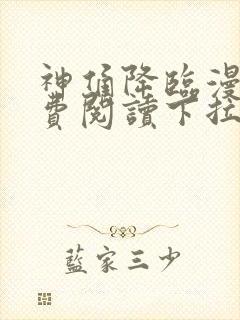 神俑降臨漫
費閱讀下拉
藍家三少